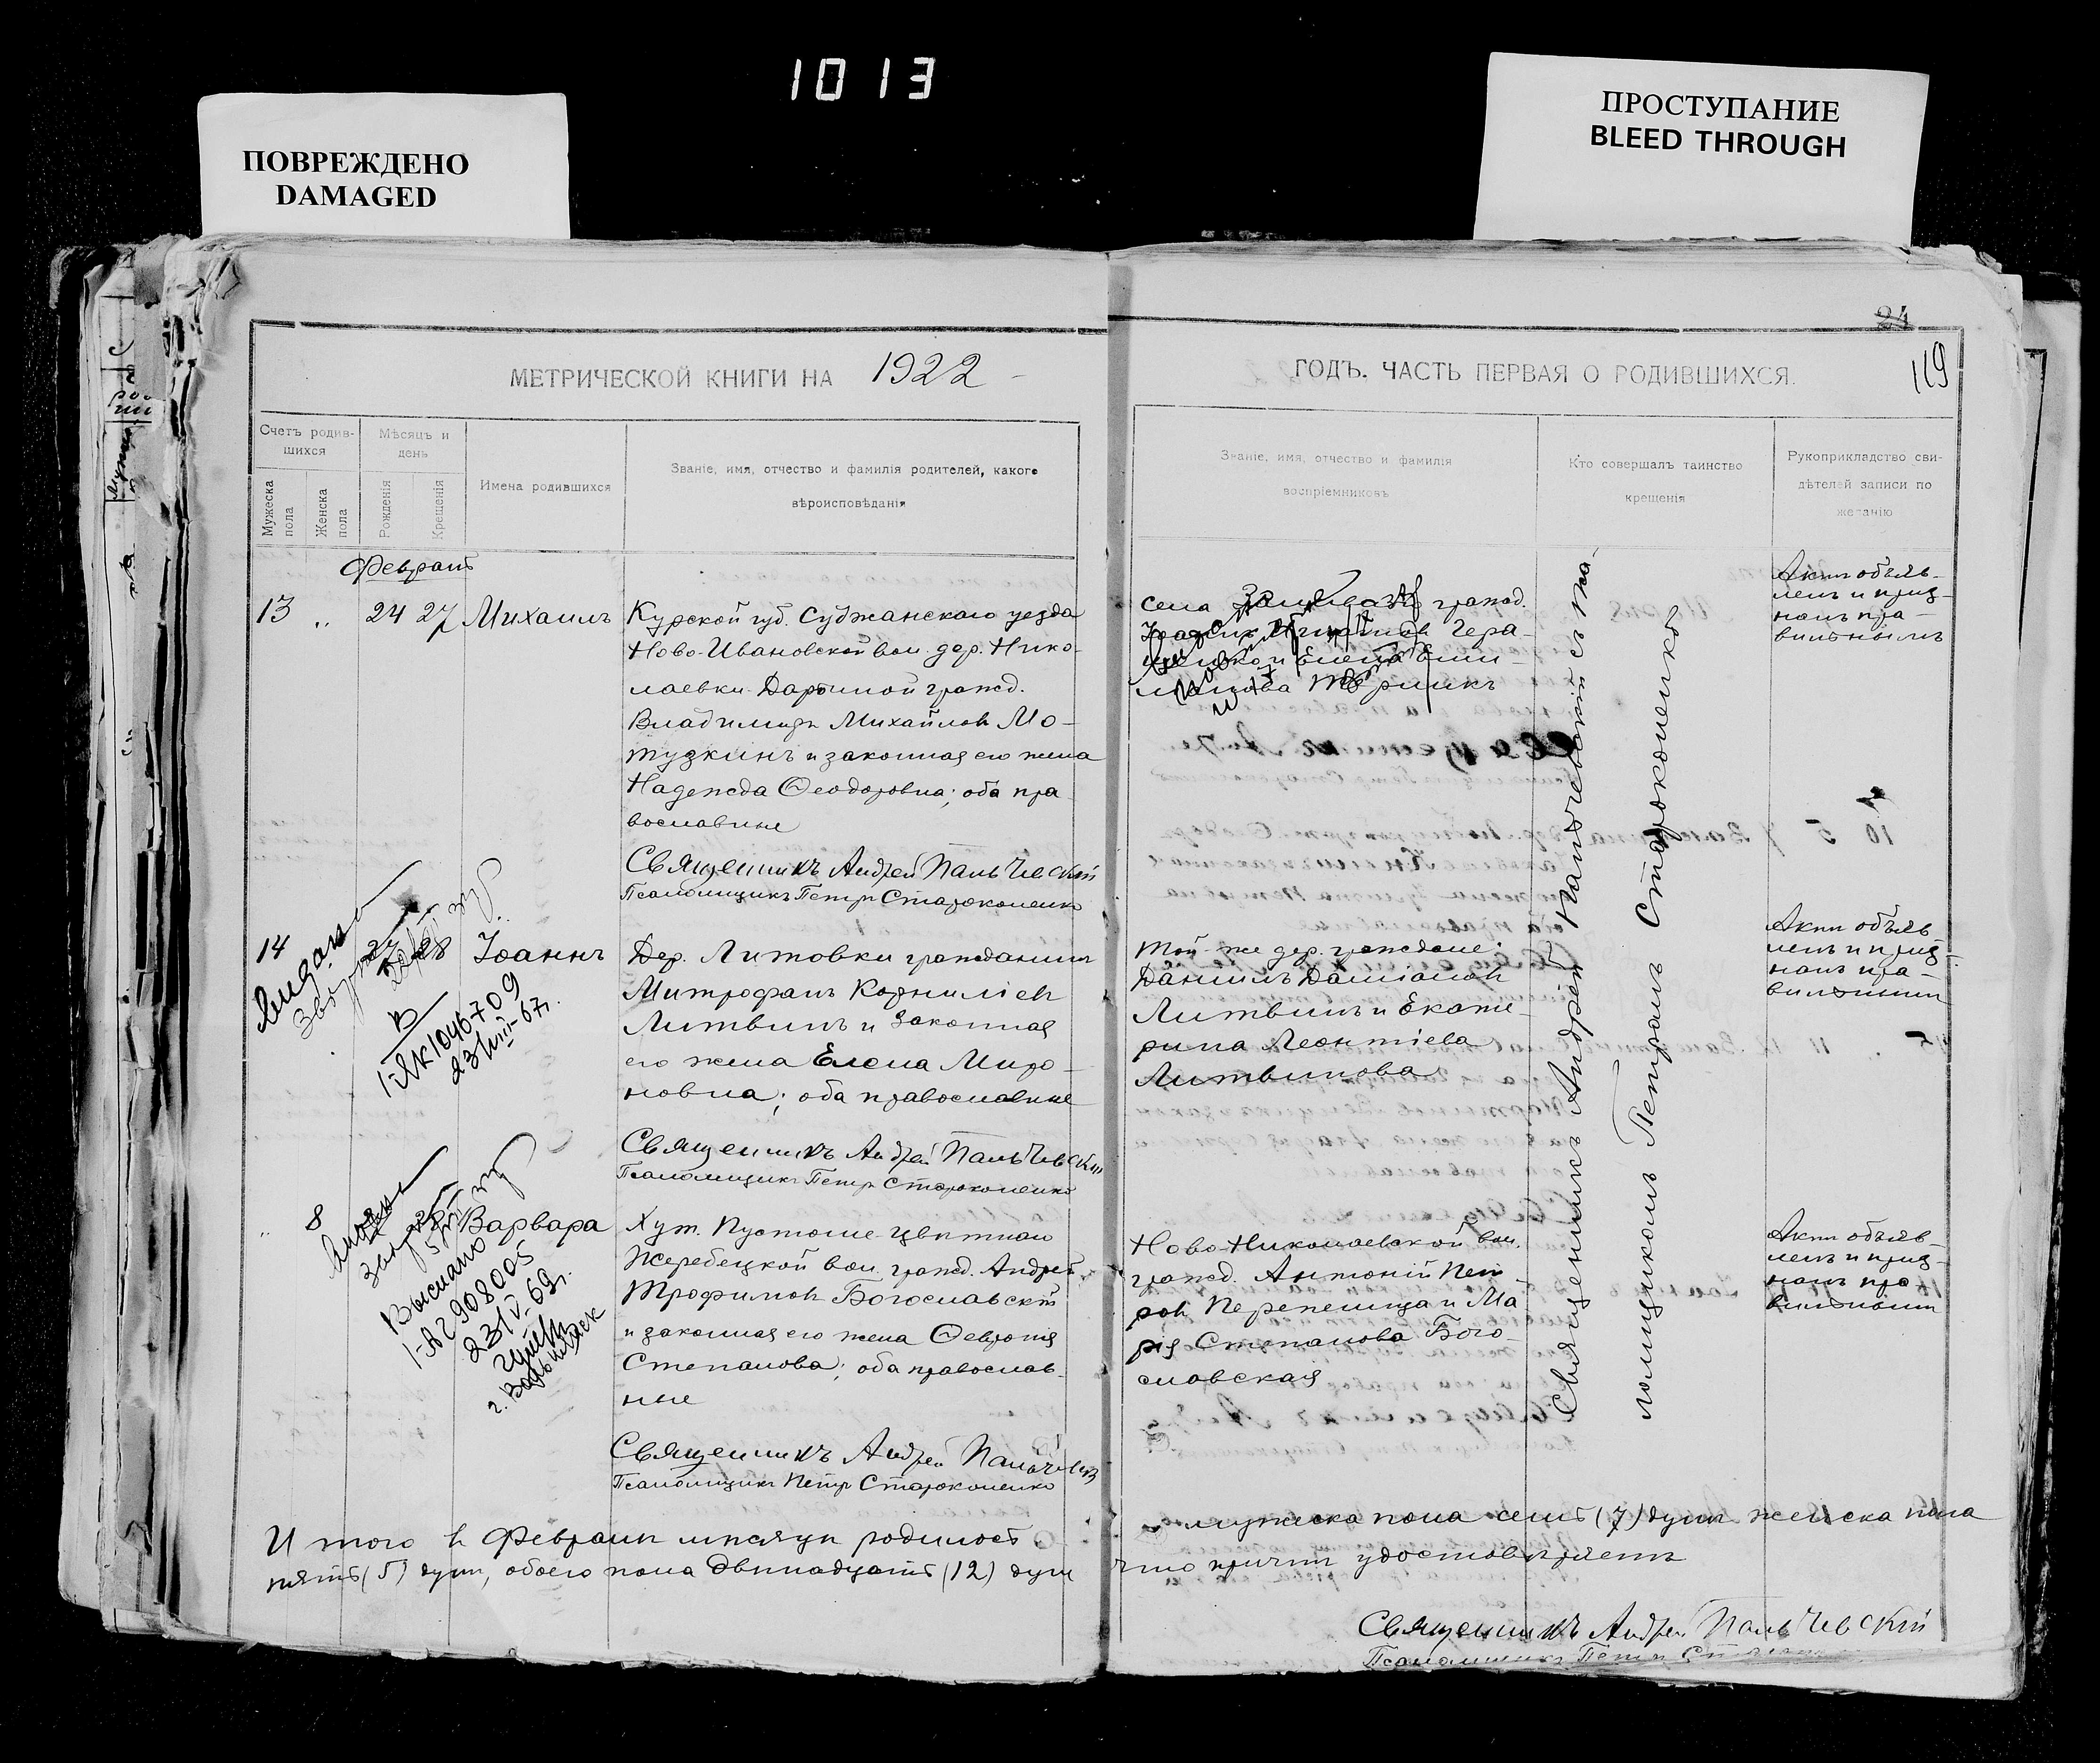 1013
ПОВРЕЖДЕНО
DAMAGED
ПРОСТУПАНИЕ
BLEED THROUGH
24
119
МЕТРИЧЕСКОЙ КНИГИ НА 1922
ГОДЪ. ЧАСТЬ ПЕРВАЯ О РОДИВШИХСЯ.
Счетъ родив-
шихся
Мужеска пола
Женска пола
Мѣсяцъ и
день
Рожденія
Крещенія
Имена родившихся
Званіе, имя, отчество и фамилія родителей, какого
вѣроисповѣданія
Званіе, имя, отчество и фамилія
воспріемниковъ
Кто совершалъ таинство
крещенія
Рукоприкладство сви-
дѣтелей записи по
желанію
Февраль
13 " 24 27 Михаилъ
Курской губ. Суджанскаго уезда
Ново-Ивановской вол. дер. Нико-
лаевки-Дарьиной гражд.
Владимиръ Михайловъ Мо-
тузкинъ и законная его жена
Надежда Ѳеодоровна; оба пра
вославные
Священникъ Андрей Пальчевскій
Псаломщикъ Петръ Староконенко
села гражд.
Гера-
щенко и Елена
Актъ объяв-
ленъ и приз-
нанъ пра-
вильнымъ
14 27 28 Іоаннъ
Дер. Литовки гражданинъ
Митрофанъ Корниліевъ
Литвинъ и законная
его жена Елена Миро-
новна; оба православные
Священникъ Андрей Пальчевскій
Псаломщикъ Петръ Староконенко
Той-же дер. граждане:
Даніилъ Даміановъ
Литвинъ и Екате-
рина Леонтіева
Литвинова
Актъ объяв
ленъ и приз-
нанъ пра-
вильнымъ
Выдано
1046709
" 8 Варвара
Хут. Пустоше-Цвѣтнаго
Жеребецкой вол. гражд. Андрей
Трофимовъ Богославскій
и законная его жена Ѳевронія
Степанова; оба православ-
ные
Священникъ Андрей Пальчевскій
Псаломщикъ Петръ Староконенко
Ново-Николаевской вол.
гражд. Антоній Пет-
ровъ Перепелица и Ма
рія Степанова Бого-
словская
Актъ объяв-
ленъ и приз-
нанъ пра
вильнымъ
Выслано
908005
Священникъ Андрей Пальчевскій съ пса-
ломщикомъ Петромъ Староконенко
Итого въ Февралѣ мѣсяцѣ родилось
мужеска пола семь (7) душъ женска пола
пять (5) душъ, обоего пола двѣнадцать (12) душъ
что причтъ удостовѣряетъ
Священникъ Андрей Пальчевскій
Псаломщикъ Петръ